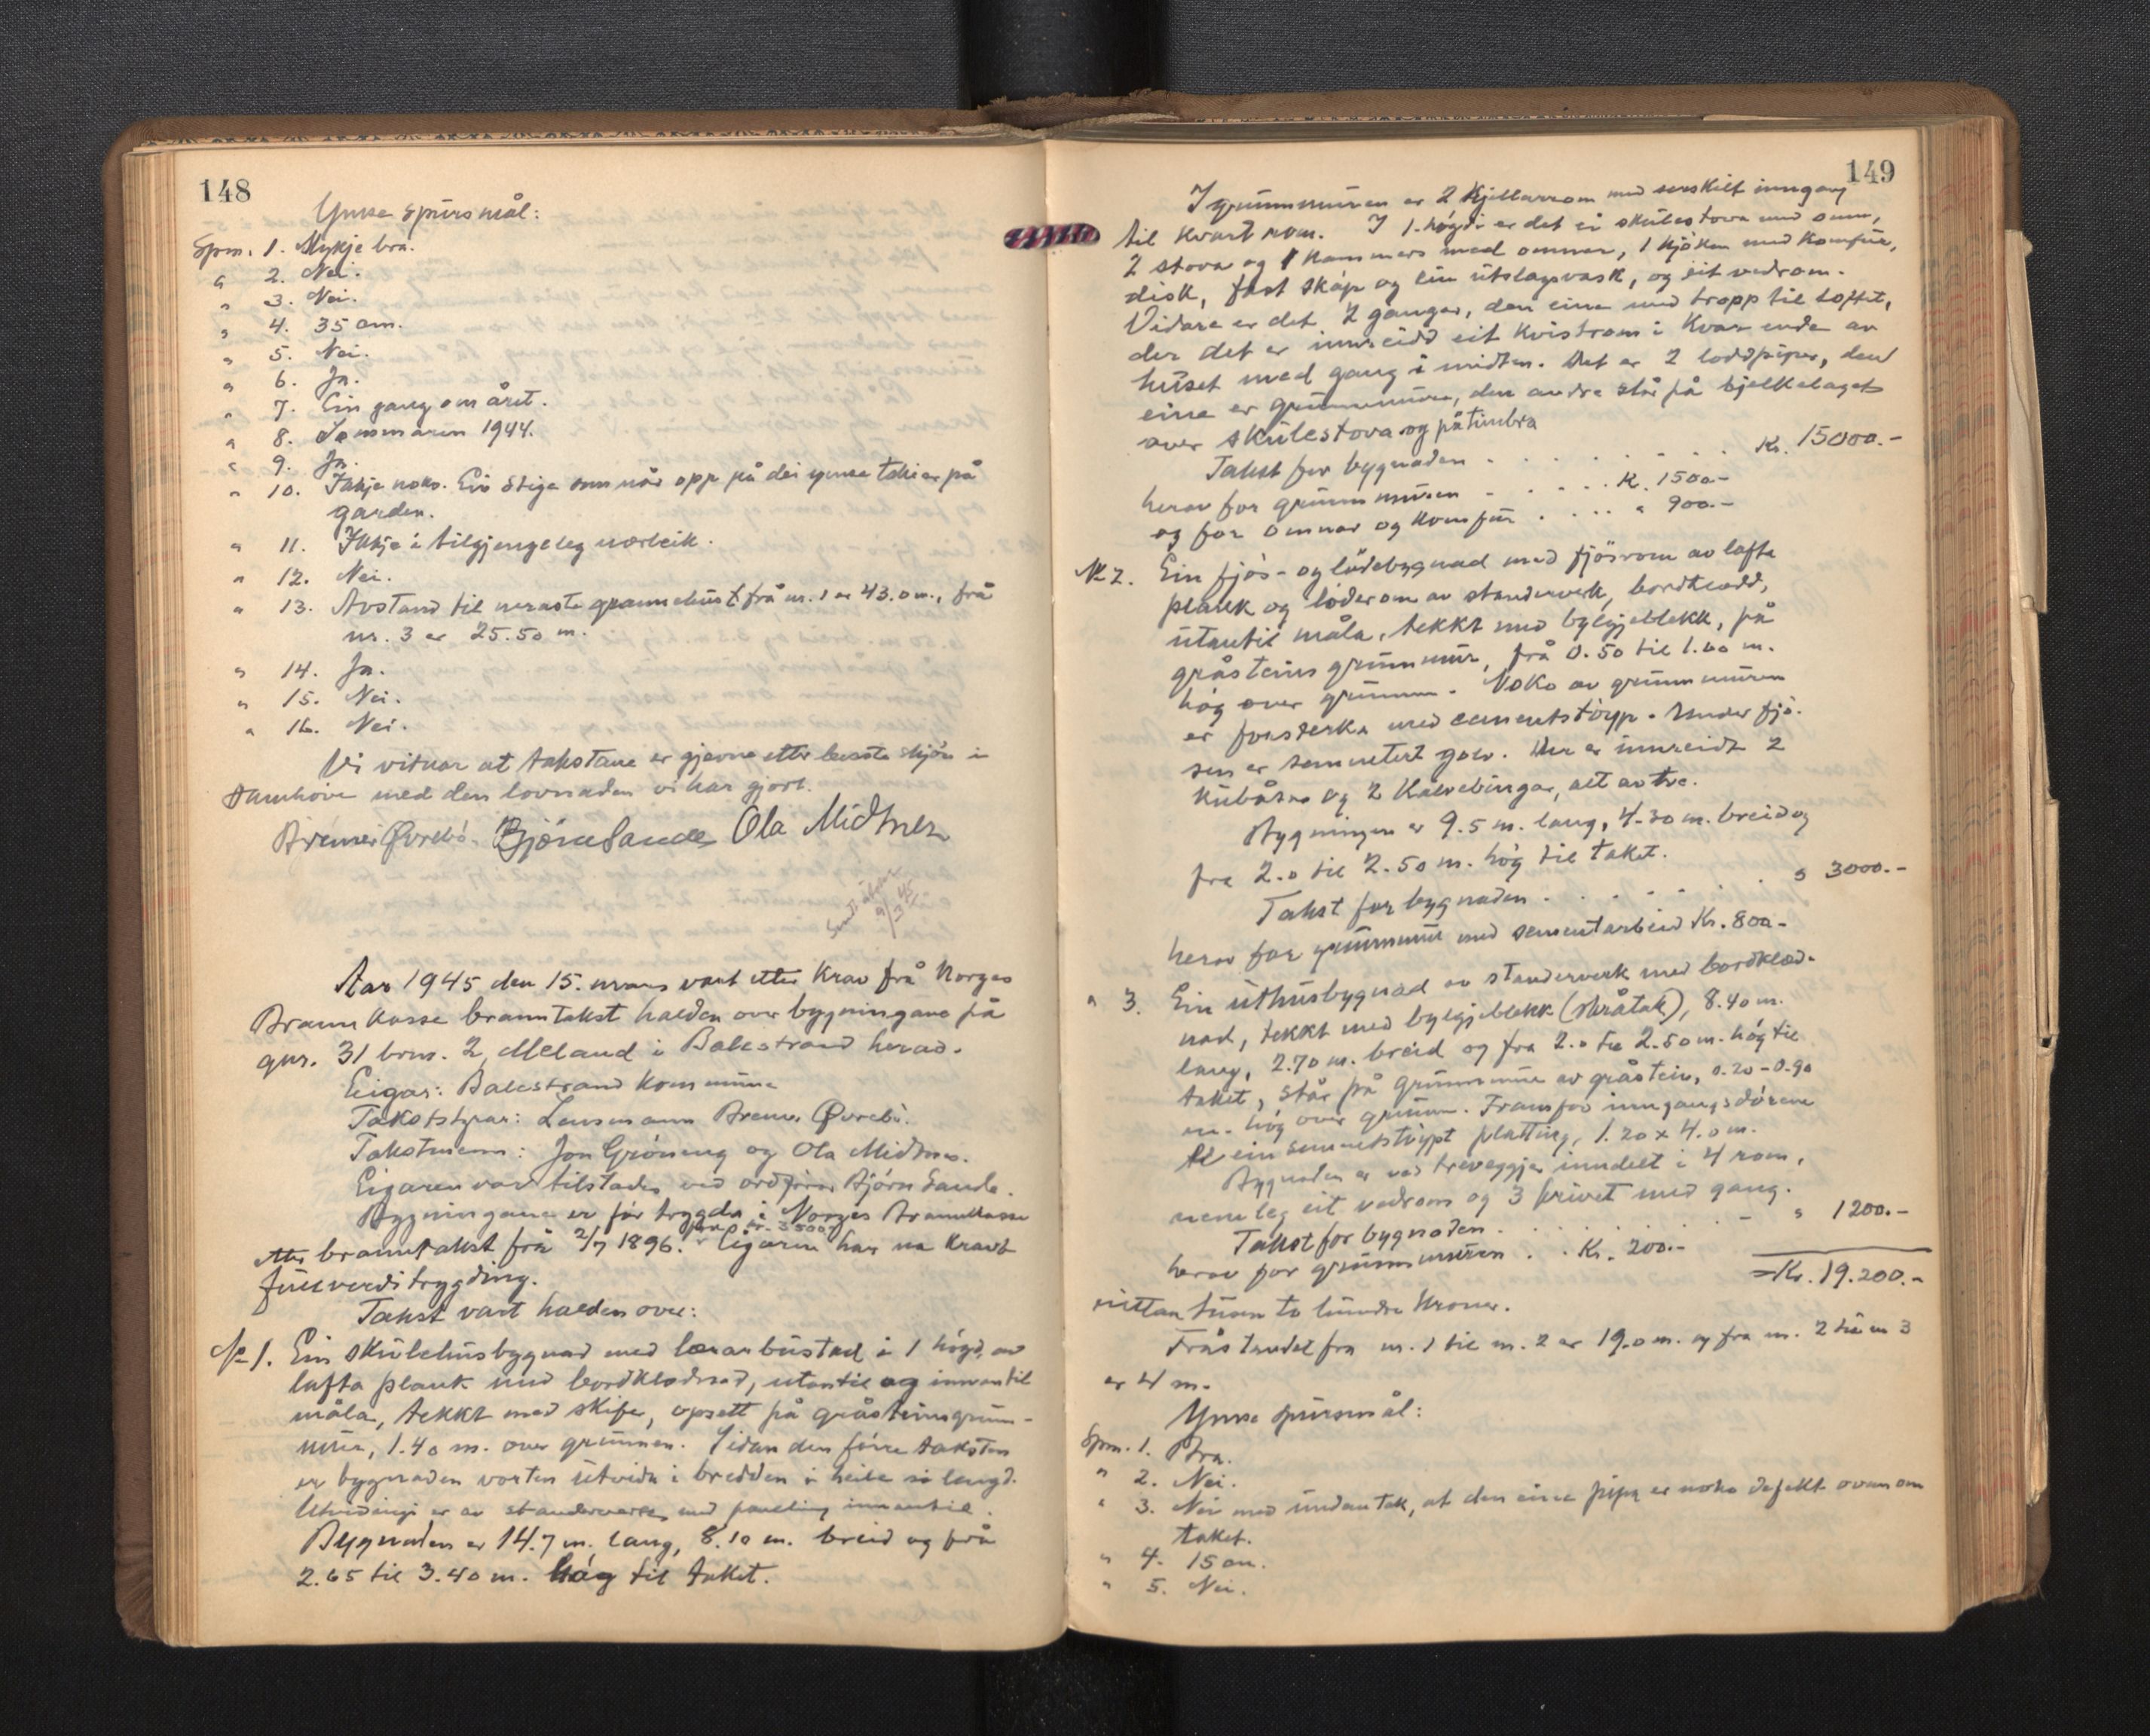 148
Ymse spursmål:
Spm. 1. Mykje bra.
" 2. Nei.
" 3. Nei.
" 4. 35 om.
" 5. Nei.
" 6. Ja.
" 7. Ein gang om året.
" 8. Sommaren 1944.
" 9. Ja.
" 10. Ikkje noko. Ein stige som når opp på dei ymse taki er på
garden.
" 11. Ikkje i tilgjengeleg nærleik.
" 12. Nei.
" 13. Avstand til næraste grannehus frå nr. 1 er 43.0 m., frå
nr. 3 er 25.50 m.
" 14. Ja.
" 15. Nei.
" 16. Nei.
Vi vitnar at takstane er gjevne etter beste skjøn i
samhøve med den lovnaden vi har gjort.
Bremer Øvrebó. Bjørn Sande Ola Midtnes
Aar 1945 den 15. mars vart etter krav frå Norges
Brannkasse branntakst halden over bygningane på
gnr. 31 brn. 2, Meland i Balestrand herad.
Eigar: Balestrand kommune
Takststyrar: Lensmann Bremer Øvrebó.
Takstmenn: Jon Grøneng og Ola Midtnes.
Eigaren var tilstades ved ordførar Bjórn Sande.
Bygningane er fór trygda i Norges Brannkasse
etter branntakst frå 2/7 1896. for kr. 3500.- Eigaren har no kravt
fullverditrygding.
Takst vart halden over:
№ 1. Ein skulehusbygnad med lærarbustad i 1 høgd, av
lafta plank med bordklednad, utantil og innantil
måla, tekkt med skifer, opsett på gråsteinsgrunn-
mur, 1.40 m. over grunnen. Sidan den fórre taksten
er bygnaden vorten utvida i bredden i heile si lengd.
Utvidingi er av standerverk med paneling innantil.
Bygnaden er 14.7 m. lang, 8.10 m. breid og frå
2.65 til 3.40 m. hóg til taket.
149
I grunnmuren er 2 kjellarrom med serskilt inngang
til kvart rom. I 1. høgdi er det ei skulestova med omn,
2 stova og 1 kammers med omnar, 1 kjóken med komfur,
disk, fast skáp og ein utslagsvask, og eit vedrom.
Vidare er det 2 ganger, den eine med tropp til loftet,
der det er innreidd eit kvistrom i kvar ende av
huset med gang i midten. Det er 2 loddpiper, den
eine er grunnmura, den andre står på bjelkelaget
over skulestova og påtimbra
Takst for bygnaden . . . . . . . . Kr. 15000.-
herav for grunnmuren . . . . . K. 1500.-
og for omnar og komfur . . . . " 900.-
№ 2. Ein fjós- og lódebygnad med fjósrom av lafta
plank og lóderom av standerverk, bordkledd,
utantil måla, tekkt med bylgjeblekk, på
gråsteins grunnmur, frå 0.50 til 1.00 m.
hóg over grunnen. Noko av grunnmuren
er forsterka med cementstóyp. Under fjó-
sen er sementert golv. Der er innreidt 2
kubåsar og 2 kalvebingar, alt av tre.
Bygningen er 9.5 m. lang, 4.30 m. breid og
fra 2.0 til 2.50 m. hóg til taket.
Takst for bygnaden . . . . . . . " 3000.-
herav for grunnmur med sementarbeid Kr. 800.-
" 3. Ein uthusbygnad av standerverk med bordkled-
nad, tekkt med bylgjeblekk (skråtak), 8.40 m.
lang, 2.70 m. breid og fra 2.0 til 2.50 m. hóg til
taket, står på grunnmur av gråstein, 0.20-0.90
m. hóg over grunn. Framfor inngangsdórene
er ein sementstóypt platting, 1.20 x 4.0 m.
Bygnaden er ved treveggjer inndelt i 4 rom,
nemleg eit vedrom og 3 privet med gang.
Takst for bygnaden . . . . . . . " 1200.-
herav for grunnmuren . . Kr. 200.-
= Kr. 19.200.-
nittan tusen to hundre kroner.
Fråstandet fra nr. 1 til nr. 2 er 19.0 m. og fra nr. 2 til nr 3
er 4 m.
Ymse spursmål:
Spm. 1. Bra.
" 2. Nei.
" 3. Nei med undantak, at den eine pipa er noko defekt ovan om
taket.
" 4. 15 om.
" 5. Nei.